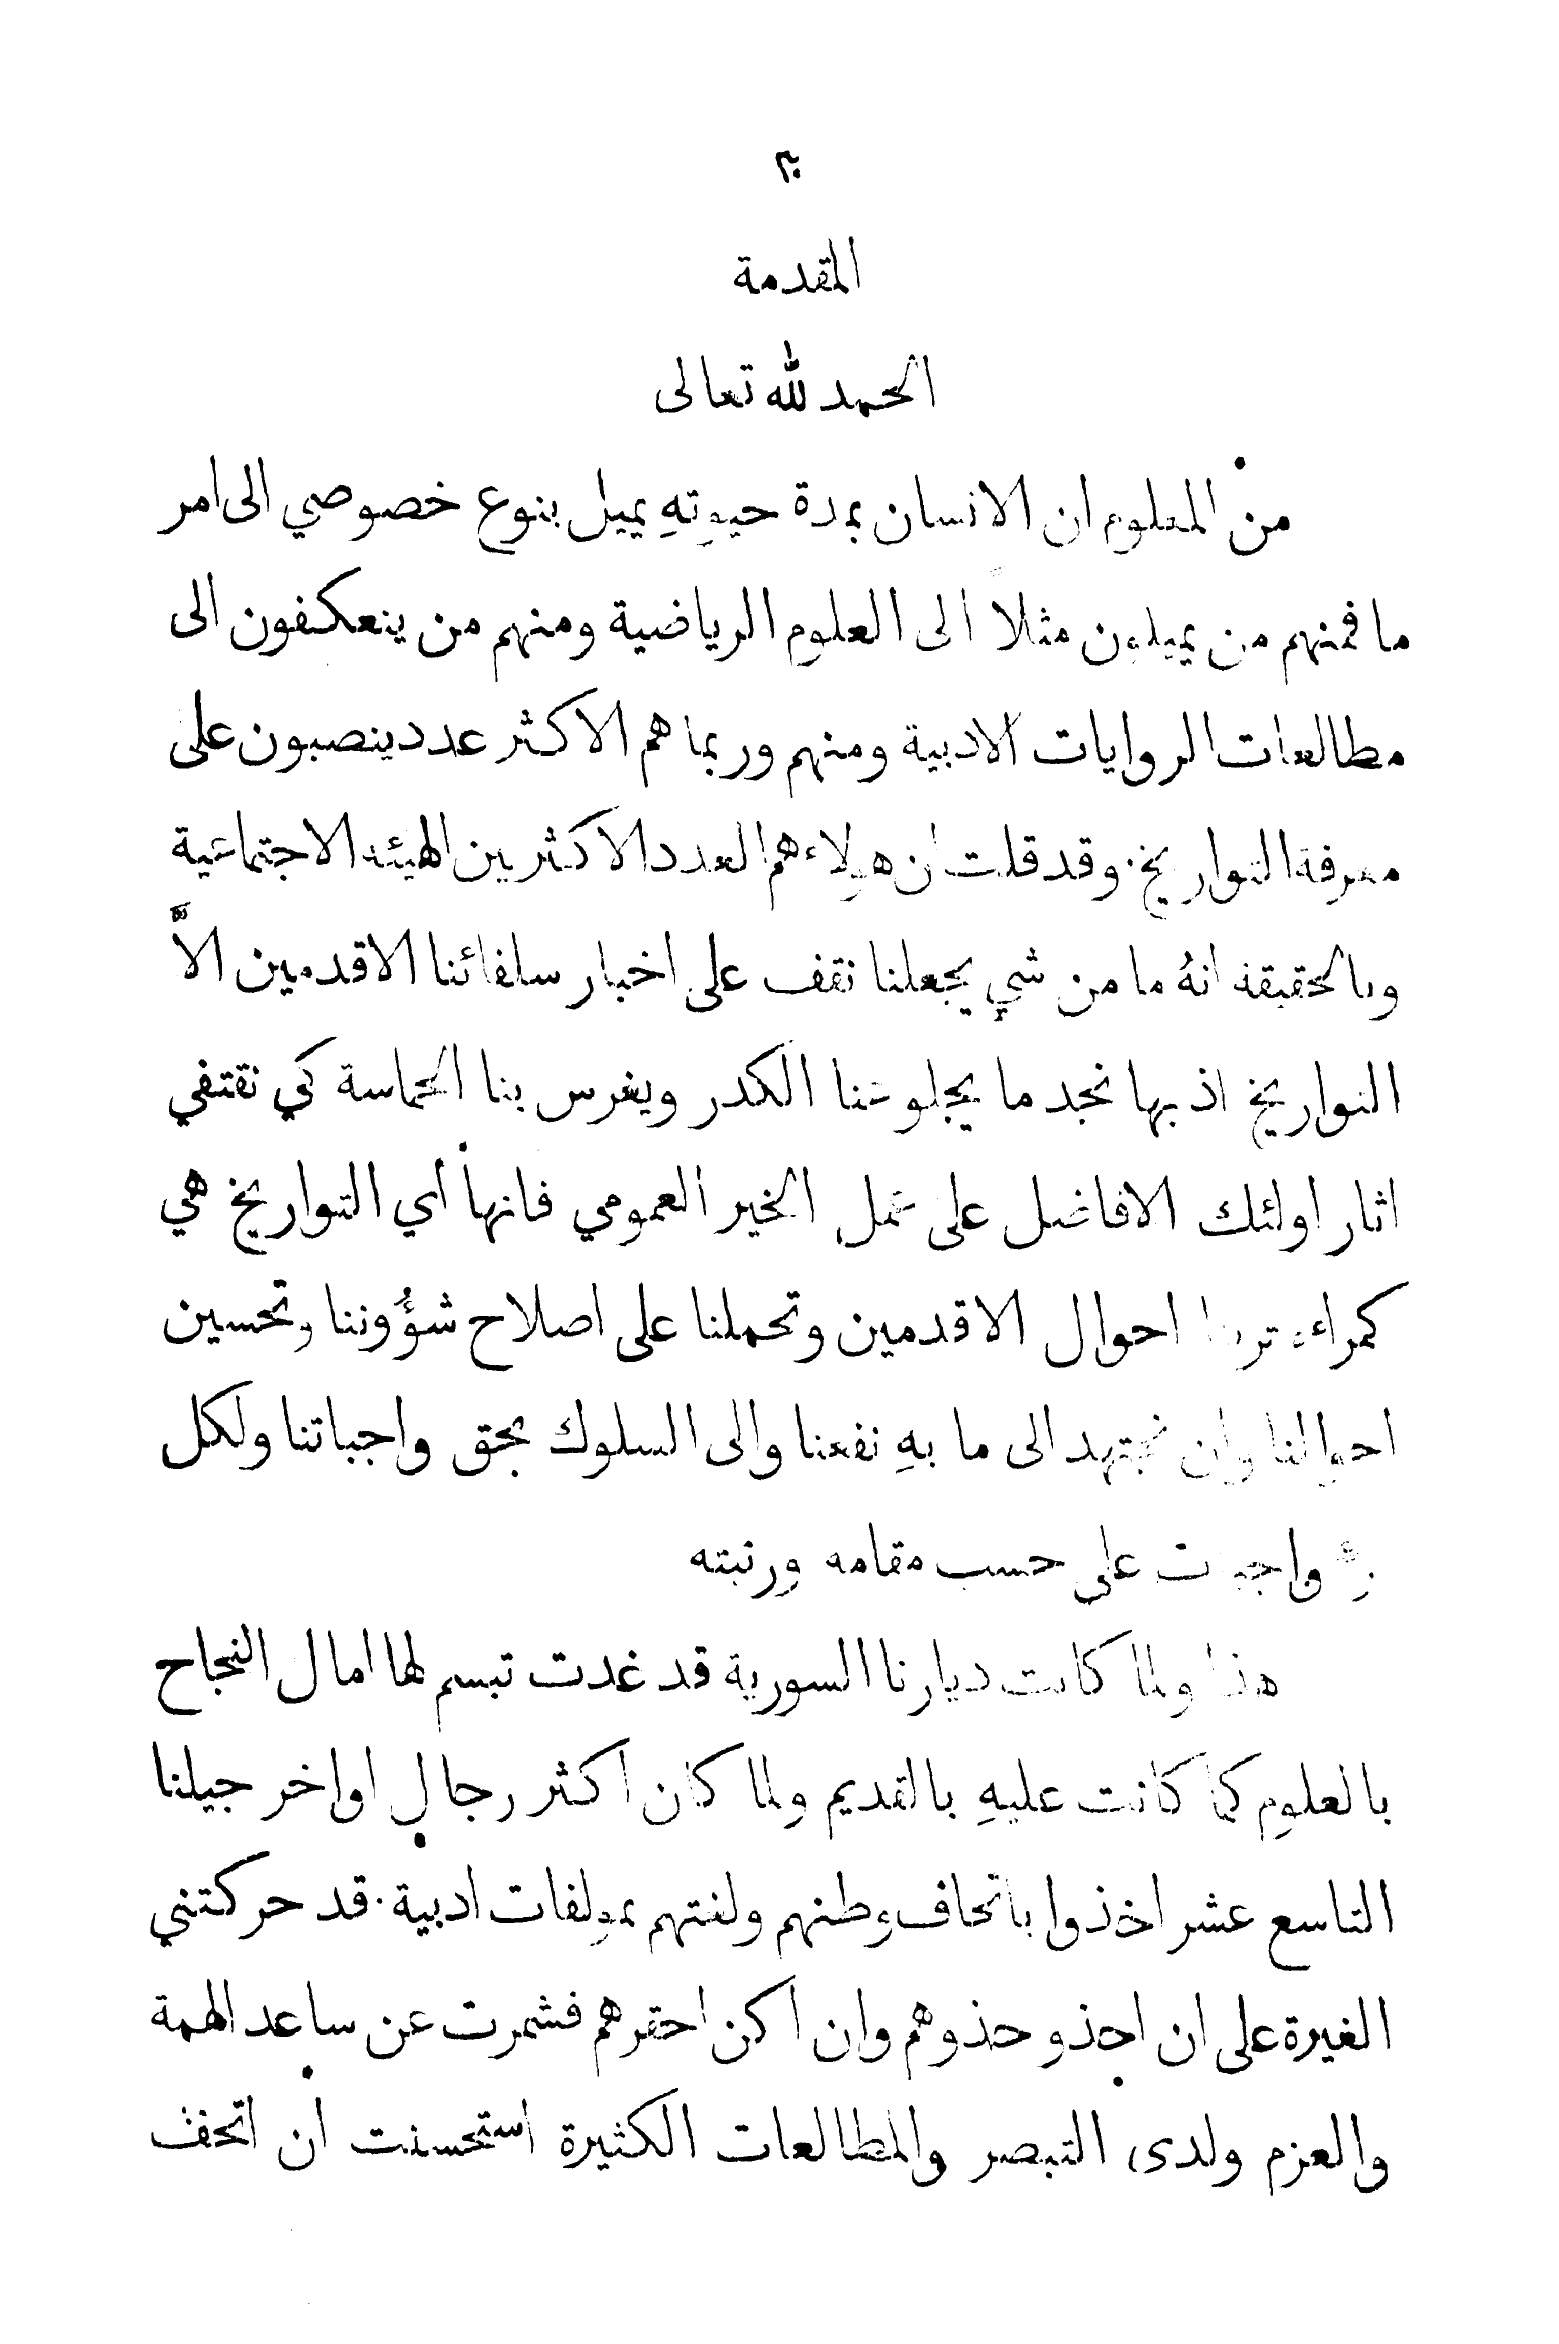 المقدمة
الحمد لله تعالى
من المعلوم ان الانسان بمدة حيوتهِ يميل بنوع خصوصي الى امر
ما فمنهم من يميلون مثلاً الى العلوم الرياضية ومنهم من ينعكفون الى
مطالعات الروايات الادبية ومنهم وربما هم الاكثر عدد ينصبون على
معرفة التواريخ. وقد قلت ان هولاء هم العدد الاكثر بين الهيئة الاجتماعية
وبالحقيقة انهُ ما من شيٍ يجعلنا نقف على اخبار سلفائنا الاقدمين الاَّ
التواريخ اذ بها نجد ما يجلو عنا الكدر ويغرس بنا الحماسة كي نقتفي
اثار اولئك الافاضل على عمل الخير العمومي فانها أي التواريخ هي
كمراءة ترينا احوال الاقدمين وتحملنا على اصلاح شؤُوننا وتحسين
احوالنا وان نجتهد الى ما بهِ نفعنا والى السلوك بحق واجباتنا ولكل
واجبات على حسب مقامه ورتبته
هذا ولما كانت ديارنا السورية قد غدت تبسم لها امال النجاح
بالعلوم كما كانت عليهِ بالقديم ولما كان اكثر رجال اواخر جيلنا
التاسع عشر اخذوا باتحاف وطنهم ولغتهم بمولفات ادبية. قد حركتني
الغيرة على ان احذو حذوهم وان اكن احقرهم فشمرت عن ساعد الهمة
والعزم ولدى التبصر والمطالعات الكثيرة استحسنت أن اتحف